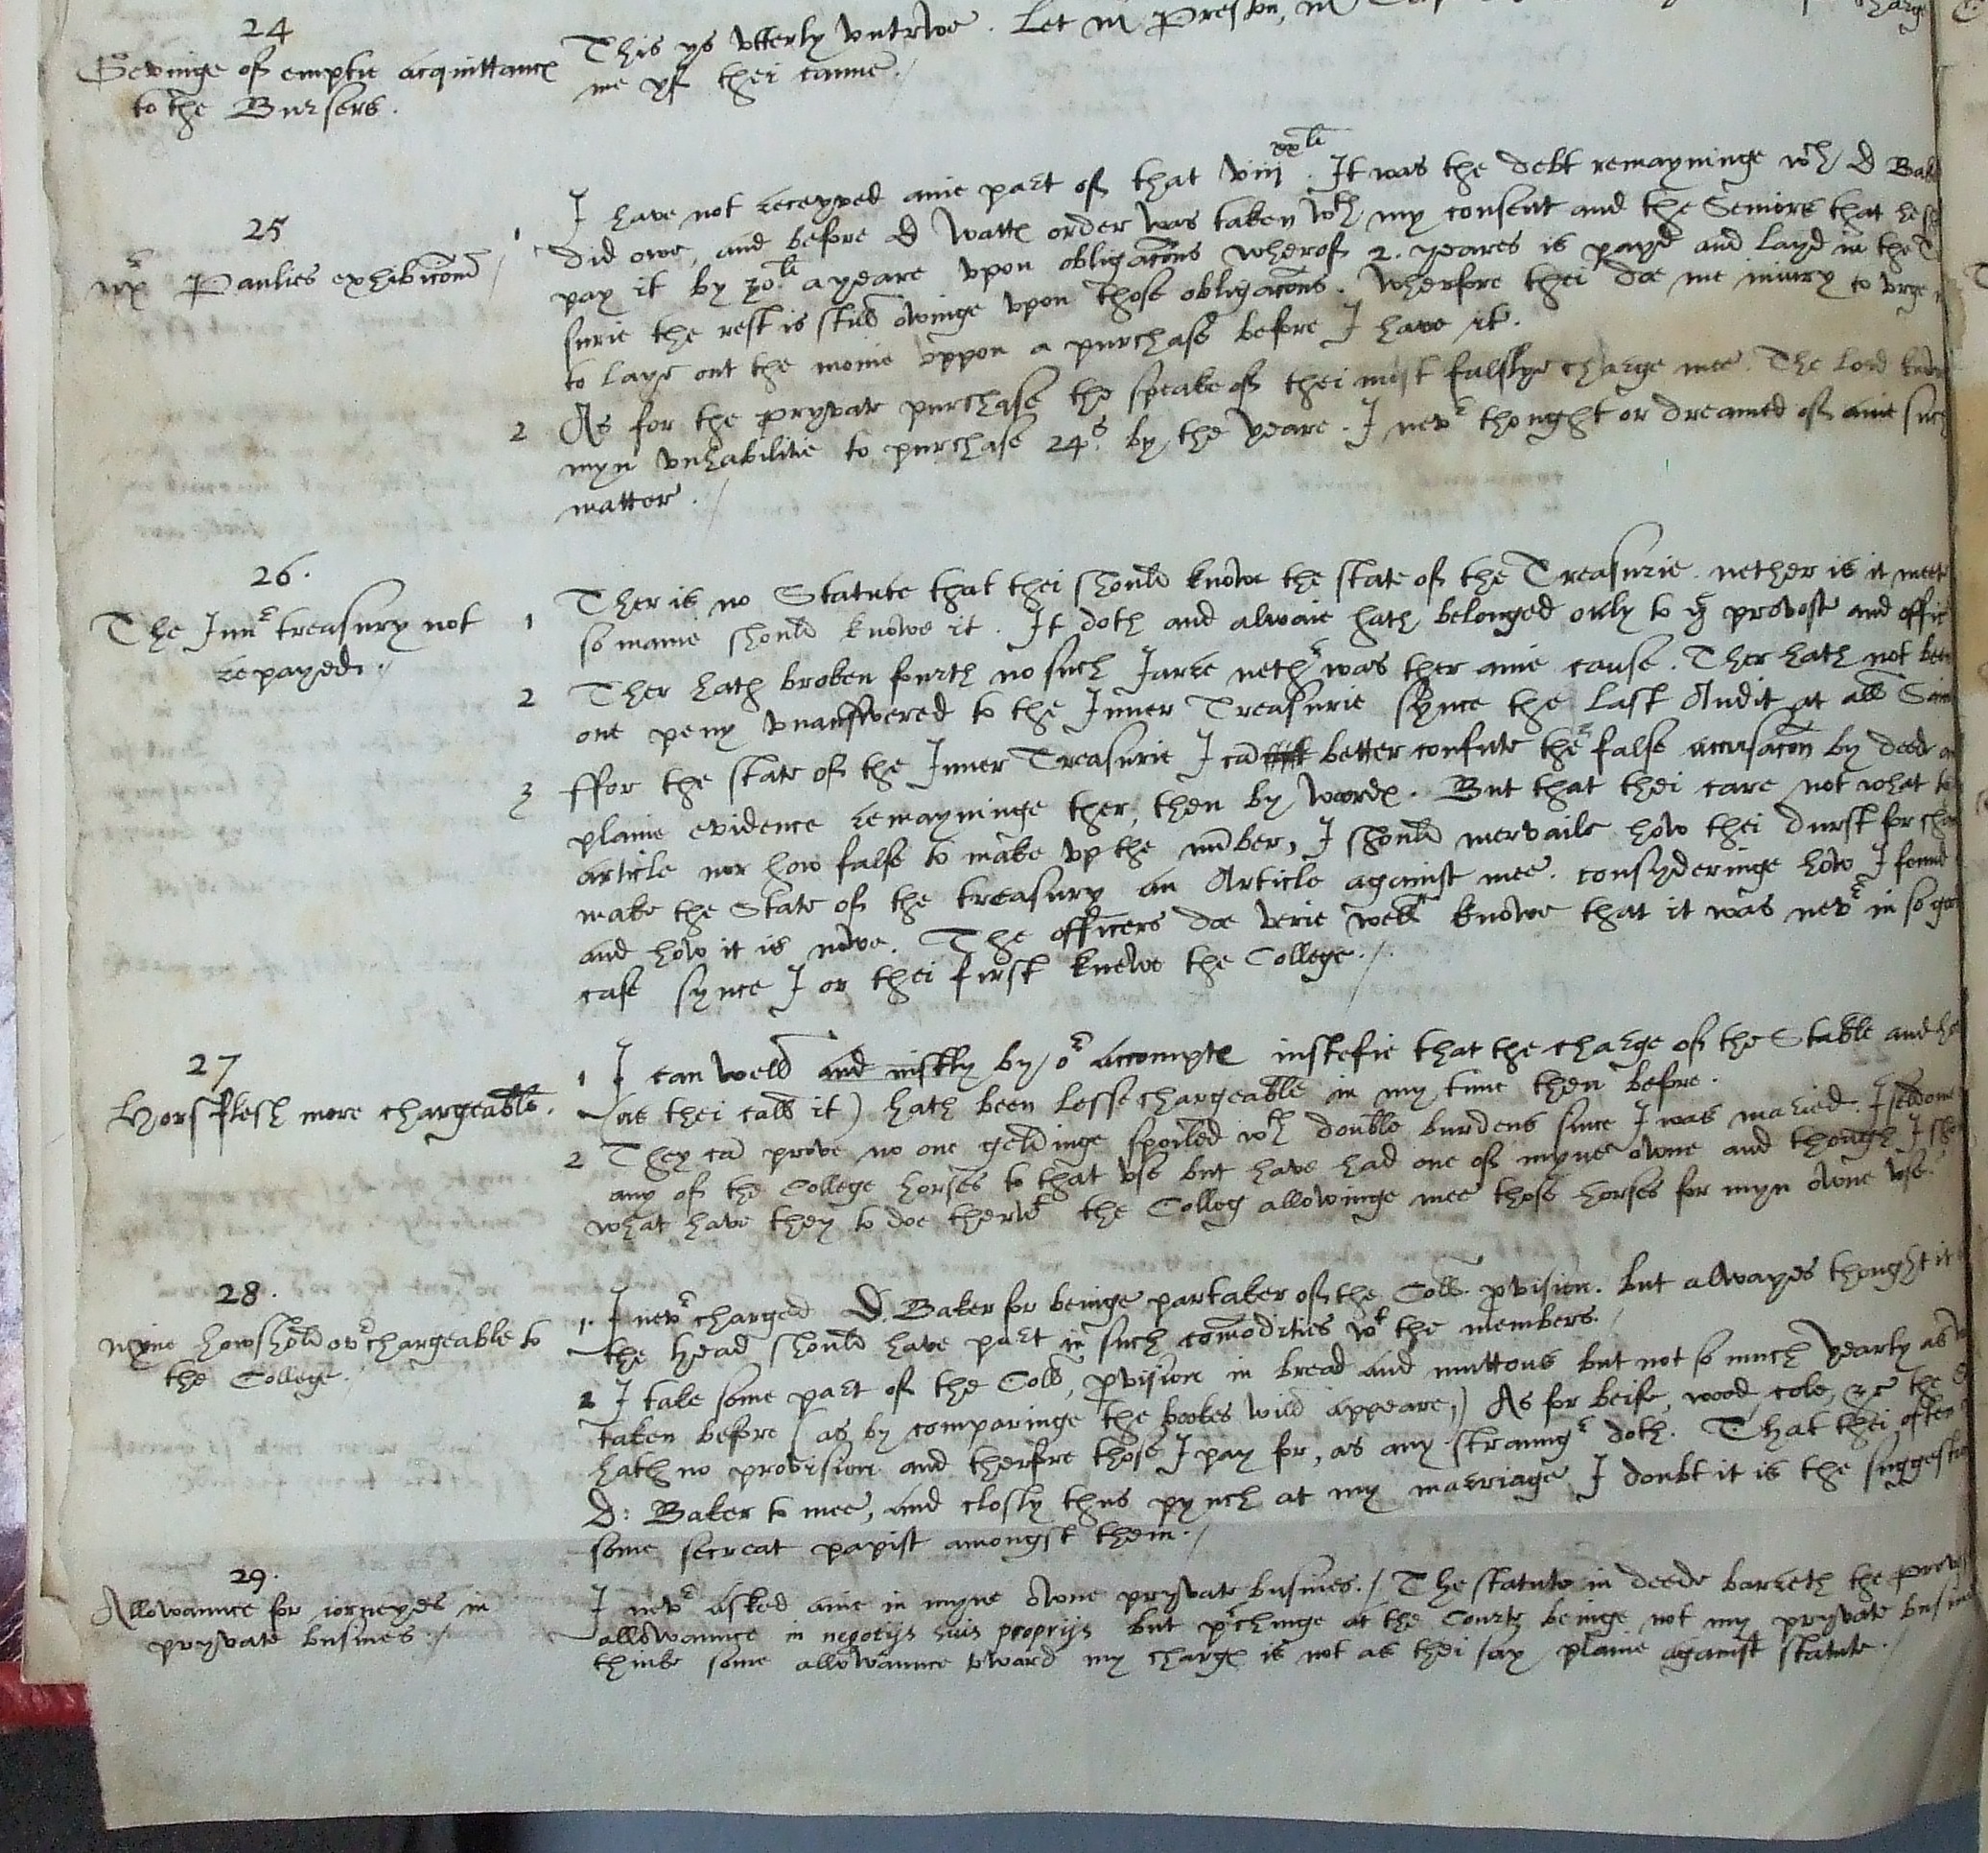 24
Gevinge of emptie acquittance
to the Bursers.
This ys vtterly vntrwe. Let M Preston, M
me yf thei canne./
25
Paulies exhibicōns
1 I have not receyved anie part of that viij xx li. It was the debt remayninge wch D Bak
did owe, and before D Watte order was taken wth my consent and the Seniors that he
pay it by 30 li a yeare vpon obligacōns wherof 2. yeares is payd and layd in the
surie the rest is still owinge vpon those obligacōns. Wherfore thei doe me iniury to vrge
to laye out the monie vppon a purchase before I have it.
2 As for the pryvate purchase the speake of thei most falslye charge mee. The Lord
myn vnhabilitie to purchase 24s by the yeare. I nevr thought or dreamed of anie such
matter./
26.
The Innr treasury not
repayed./
1 Ther is no Statute that thei should knowe the state of the Treasurie. nether is it meete
so manie should knowe it. It doth and alwaie hath belonged only to ye provost and offic
2 Ther hath broken fourth no such Jarre nethr was ther anie cause. Ther hath not been
one peny vnanswered to the Inner Treasurie synce the last Audit at all
3 ffor the state of the Inner Treasurie I cā better confute ther false accusacōn by deede
plaine evidence remayninge ther, then by wordes. But that thei care not what
article nor how false to make vp the nūber, I should mervaile how thei durst for
make the State of the treasury an Article against mee. consyderinge how I found
and how it is nowe. The officers doe verie well knowe that it was nevr in so
case synce I or thei first knewe the College./
27
Horsflesh more chargeable.
1 I can well and iustly by or accompte iustefie that the charge of the Stable and
(as thei call it) hath been lesse chargeable in my time then before.
2 They cā prove no one geldinge spoiled wth double burdens since I was maried. I seldome
any of the College horses to that vse but have had one of myne owne and though I
what have they to doe therwt the Colleg allowinge mee those horses for myn owne vse.
28.
myne howshold ovrchargeable to
the College.
1. I nevr charged D. Baker for beinge partaker of the Coll. pvision. but alwayes thought it
the head should have part in such comodities wt the members./
2 I take some part of the Coll, pvision in bread and muttons but not so much yearly as
taken before (as by comparinge the bookes will appeare,) As for beife, wood, cole, &c the
hath no provision and therfore those I pay for, as any straungr doth. That thei often
D: Baker to mee, and closly thus pynch at my marriage I doubt it is the
some secreat papist amongst them./
29.
Allowaunce for iorneyes in
pryvate busines./
I nevr asked anie in myne owne pryvate busines./ The statute in deede barreth the
allowaunce in negotijs suis proprijs but prchinge at the Courte beinge not my pryvate
thinke some allowaunce toward my charge is not as thei say plaine against statute./